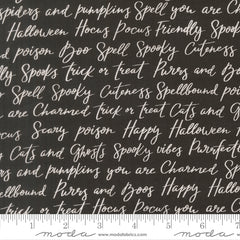 spiders and pumpkins Spell you are Ch
Halloween Hocus Pocus Friendly Spook
d poison Boo Spell Spooky Cuteness
Spooks trick or treat Purrs and Bo
Spell Spooky Cuteness Spellbound
are Charmed trick or treat Cats and G
ocus Scary poison Happy Halloween
Cats and Ghosts Spooky vibes Purrfect
nd Boos Spell pumpkins you are Charmed Sp
ellbound Purrs and Boos Happy Hallow
trick or treat Hocus Pocus you are C
1 2 3 4 5 6 7
moda www.modafabrics.com moda